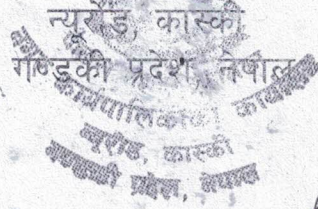 न्यूरोड, कास्की
गण्डकी प्रदेश, नेपाल
कार्यपालिकाको कार्यालय
न्यूरोड, कास्की
गण्डकी प्रदेश, नेपाल